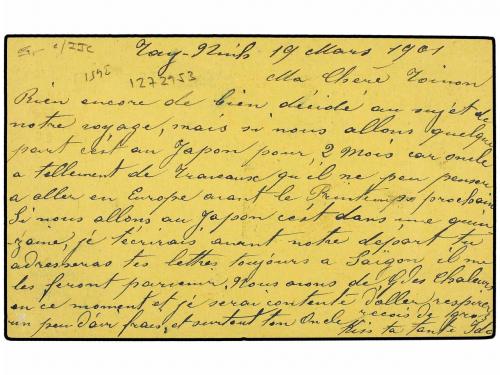 c/25c
1272953
Tay-Ninh 19 Mars 1901
Ma Chère Toinon
Rien encore de bien décidé au sujet de
notre voyage, mais si nous allons quelque
part c'est au Japon pour 2 Mois car oncle
a tellement de travaux qu'il ne peu penser
a aller en Europe avant le Printemps prochain
Si nous allons au Japon c'est dans une quin
-zaine, je t'écrirais avant notre depart tu
adresseras tes lettres toujours a Saigon il me
les feront parvenir. Nous avons de Gdes Chaleurs
en ce moment et je serai contente d'aller respirer
un peu d'air frais, et surtout ton Oncle reçois de gros
Kiss ta tante